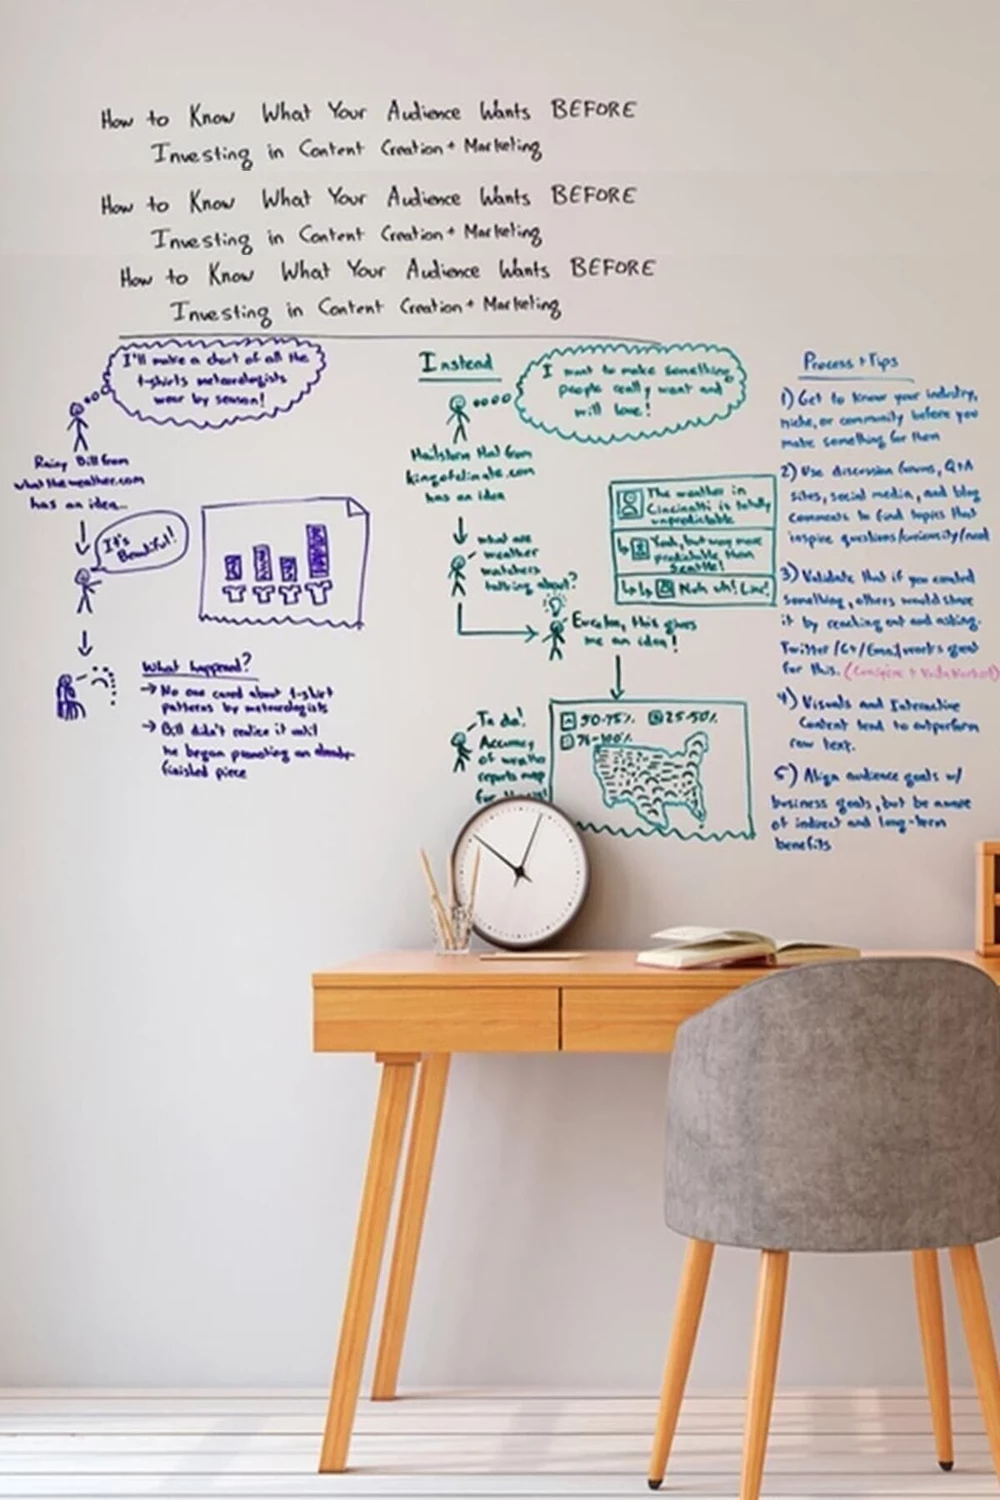 How to Know What Your Audience Wants BEFORE
Investing in Content Creation + Marketing
How to Know What Your Audience Wants BEFORE
Investing in Content Creation + Marketing
How to Know What Your Audience Wants BEFORE
Investing in Content Creation + Marketing
I'll make a chart of all the
t-shirts meteorologists
wear by season!
Rainy Bill from
whattheweather.com
has an idea...
It's
Beautiful!
What happened?
→ No one cared about t-shirt
patterns by meteorologists
→ Bill didn't realize it until
he began promoting an already-
finished piece
Instead
I want to make something
people really want and
will love!
Hailstorm Hal from
kingofclimate.com
has an idea
what are
weather
watchers
talking about?
The weather in
Cincinatti is totally
unpredictable
Yeah, but way more
predictable than
Seattle!
Nuh uh! Liar!
Eureka, this gives
me an idea!
Ta da!
Accuracy
of weather
reports map
50-75% 25-50%
76-100%
Process + Tips
1) Get to know your industry,
niche, or community before you
make something for them
2) Use discussion forums, Q+A
sites, social media, and blog
comments to find topics that
inspire questions/curiosity/need
3) Validate that if you created
something, others would share
it by reaching out and asking.
Twitter/G+/Email works great
for this.
4) Visuals and Interactive
Content tend to outperform
raw text.
5) Align audience goals w/
business goals, but be aware
of indirect and long-term
benefits